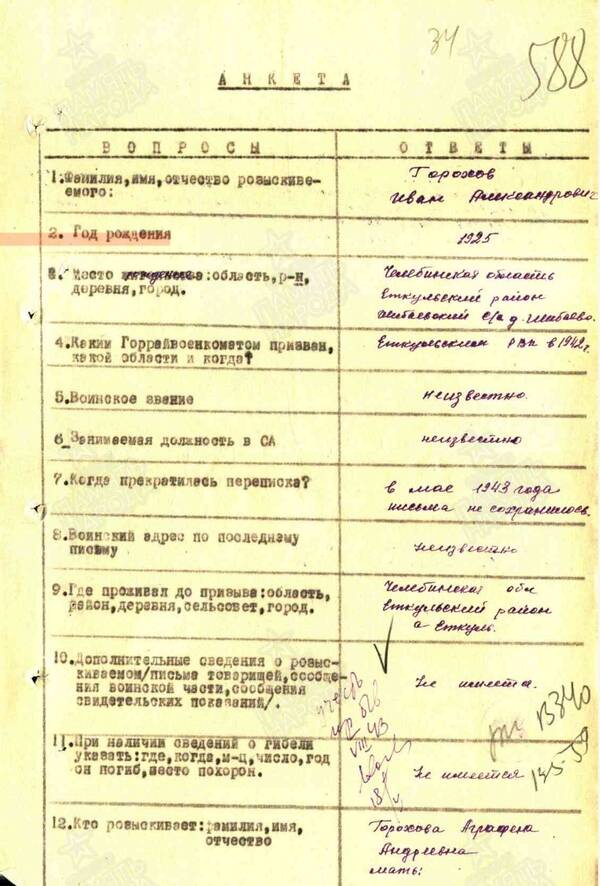 34
588
АНКЕТА
ВОПРОСЫ
ОТВЕТЫ
1.Фамилия,имя,отчество розыскива-
емого:
Горохов
Иван Александрович
2. Год рождения
1925
3. Место :область,р-н,
деревня,город.
Челебинская область
Еткульский район
с/с д. Шибаево.
4.Каким Горрайвоенкоматом призван,
какой области и когда?
Еткульским РВК в 1942г.
5.Воинское звание
неизвестно.
6 Занимаемая должность в СА
неизвестно
7.Когда прекратилась переписка?
в мае 1943 года
письма не сохранилось.
8.Воинский адрес по последнему
письму
неизвестно
9.Где проживал до призыва:область,
район,деревня,сельсовет,город.
Челебинская обл
Еткульский район
Еткуль.
10.Дополнительные сведения о розыс-
киваемом/письма товарищей,сообще-
ния воинской части,сообщения
свидетельских показаний/.
Не имеется.
11.При наличии сведений о гибели
указать:где,когда,м-ц,число,год
он погиб,место похорон.
Не имеется
VIII 43
12.Кто розыскивает:фамилия,имя,
отчество
Горохова Аграфена
Андреевна
мать.